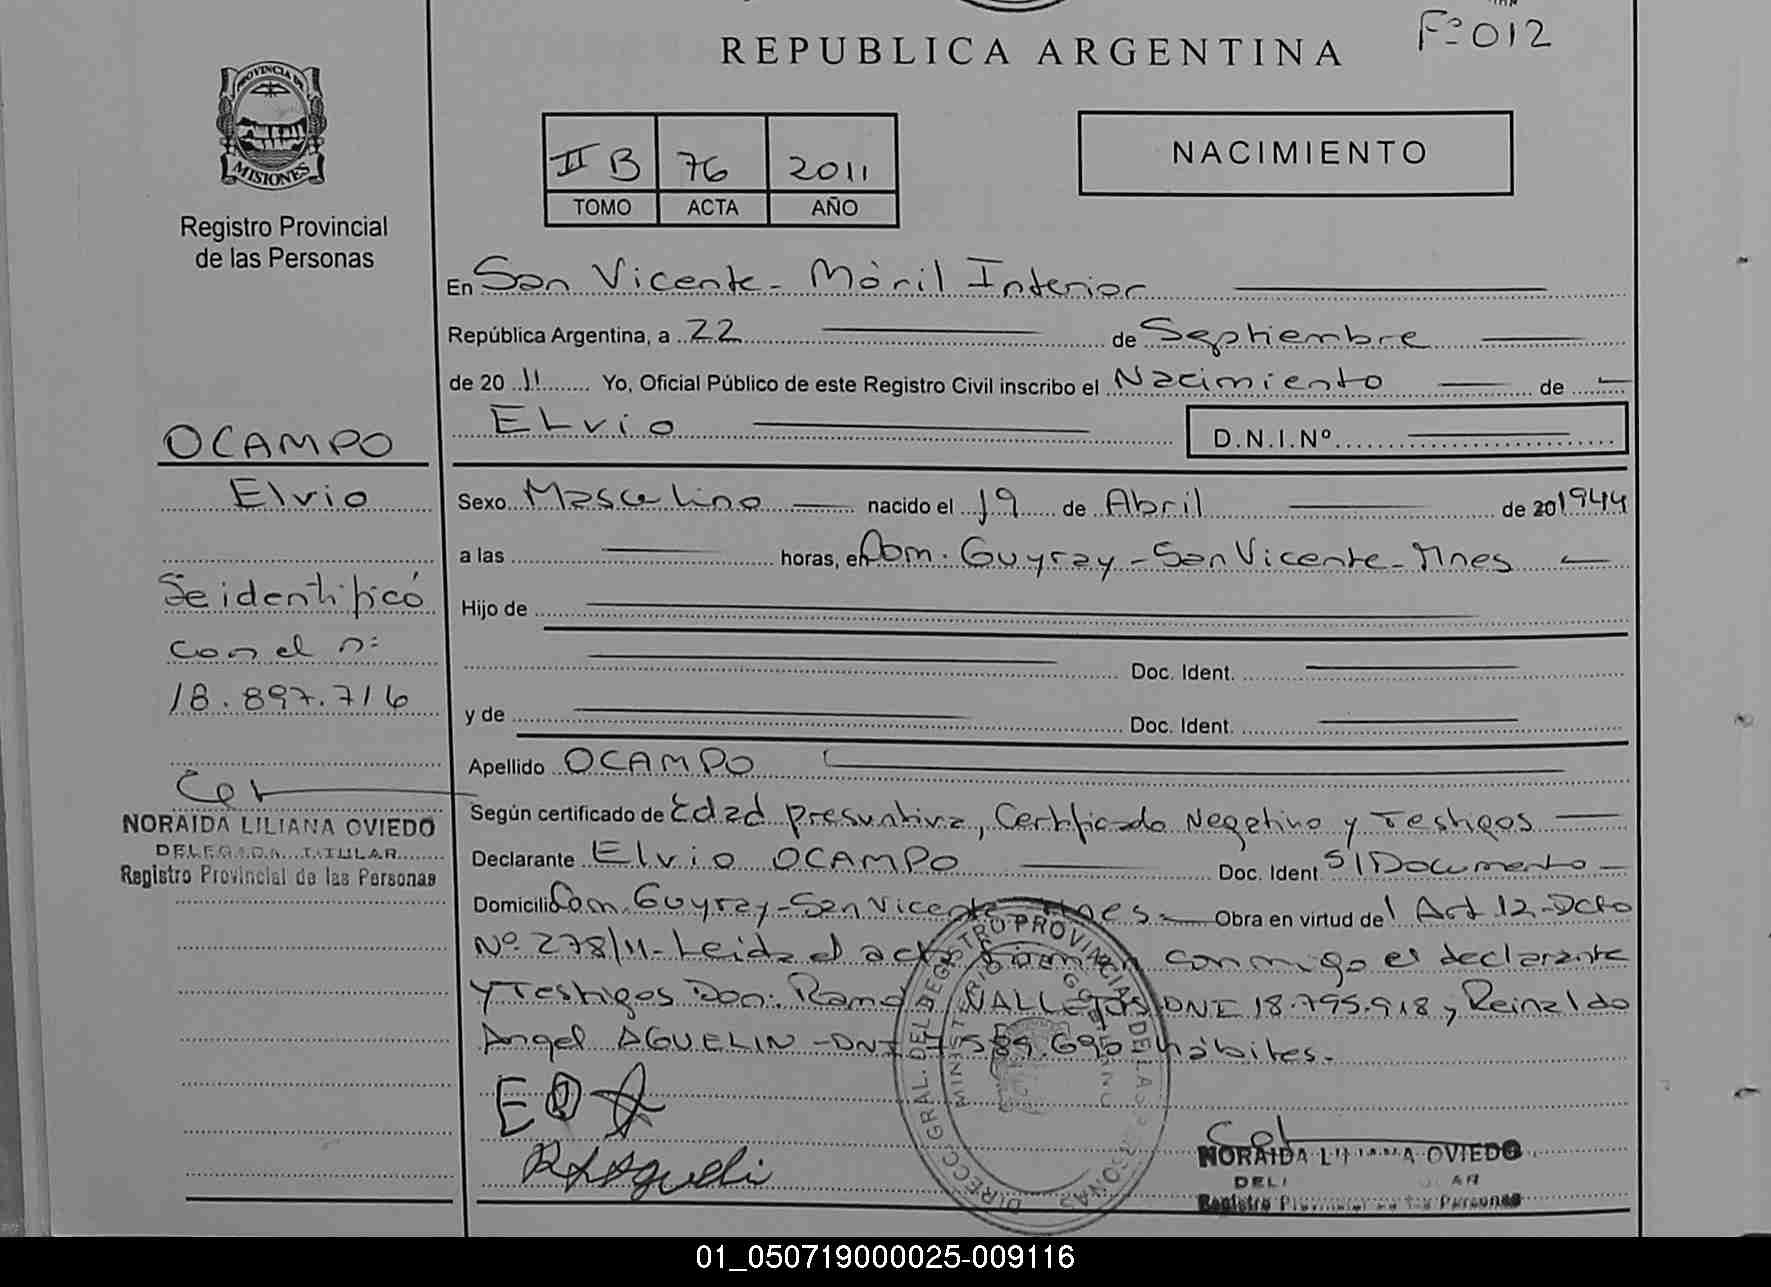 Fº 012
REPUBLICA ARGENTINA
PROVINCIA DE
MISIONES
Registro Provincial
de las Personas
II B 76 2011
TOMO ACTA AÑO
NACIMIENTO
En San Vicente - Móvil Interior
República Argentina, a 22 de Septiembre
de 20 11 Yo, Oficial Público de este Registro Civil inscribo el Nacimiento de
Elvio D.N.I.Nº
OCAMPO
Elvio
Se identificó
con el nº
18.897.716
NORAIDA LILIANA OVIEDO
DELEGADA TITULAR
Registro Provincial de las Personas
Sexo Masculino nacido el 19 de Abril de 20 1944
a las horas, en Dom. Guyray - San Vicente - Mnes
Hijo de
Doc. Ident.
y de Doc. Ident.
Apellido OCAMPO
Según certificado de Edad presuntiva, Certificado Negativo y Testigos
Declarante Elvio OCAMPO Doc. Ident S/Documento
Domicilio Dom. Guyray - San Vicente - Mnes. Obra en virtud del Art 12 - Dcto
Nº 278/11 - Leida el acta firman conmigo el declarante
y Testigos Don: Ramón VALLEJOS DNI 18.795.918 y Reinaldo
Angel AGUELIN - DNI 589.695 hábiles.
DIRECC. GRAL. DEL REGISTRO PROVINCIAL DE LAS PERSONAS
MINISTERIO
NORAIDA LILIANA OVIEDO
Registro Provincial de las Personas
01_050719000025-009116